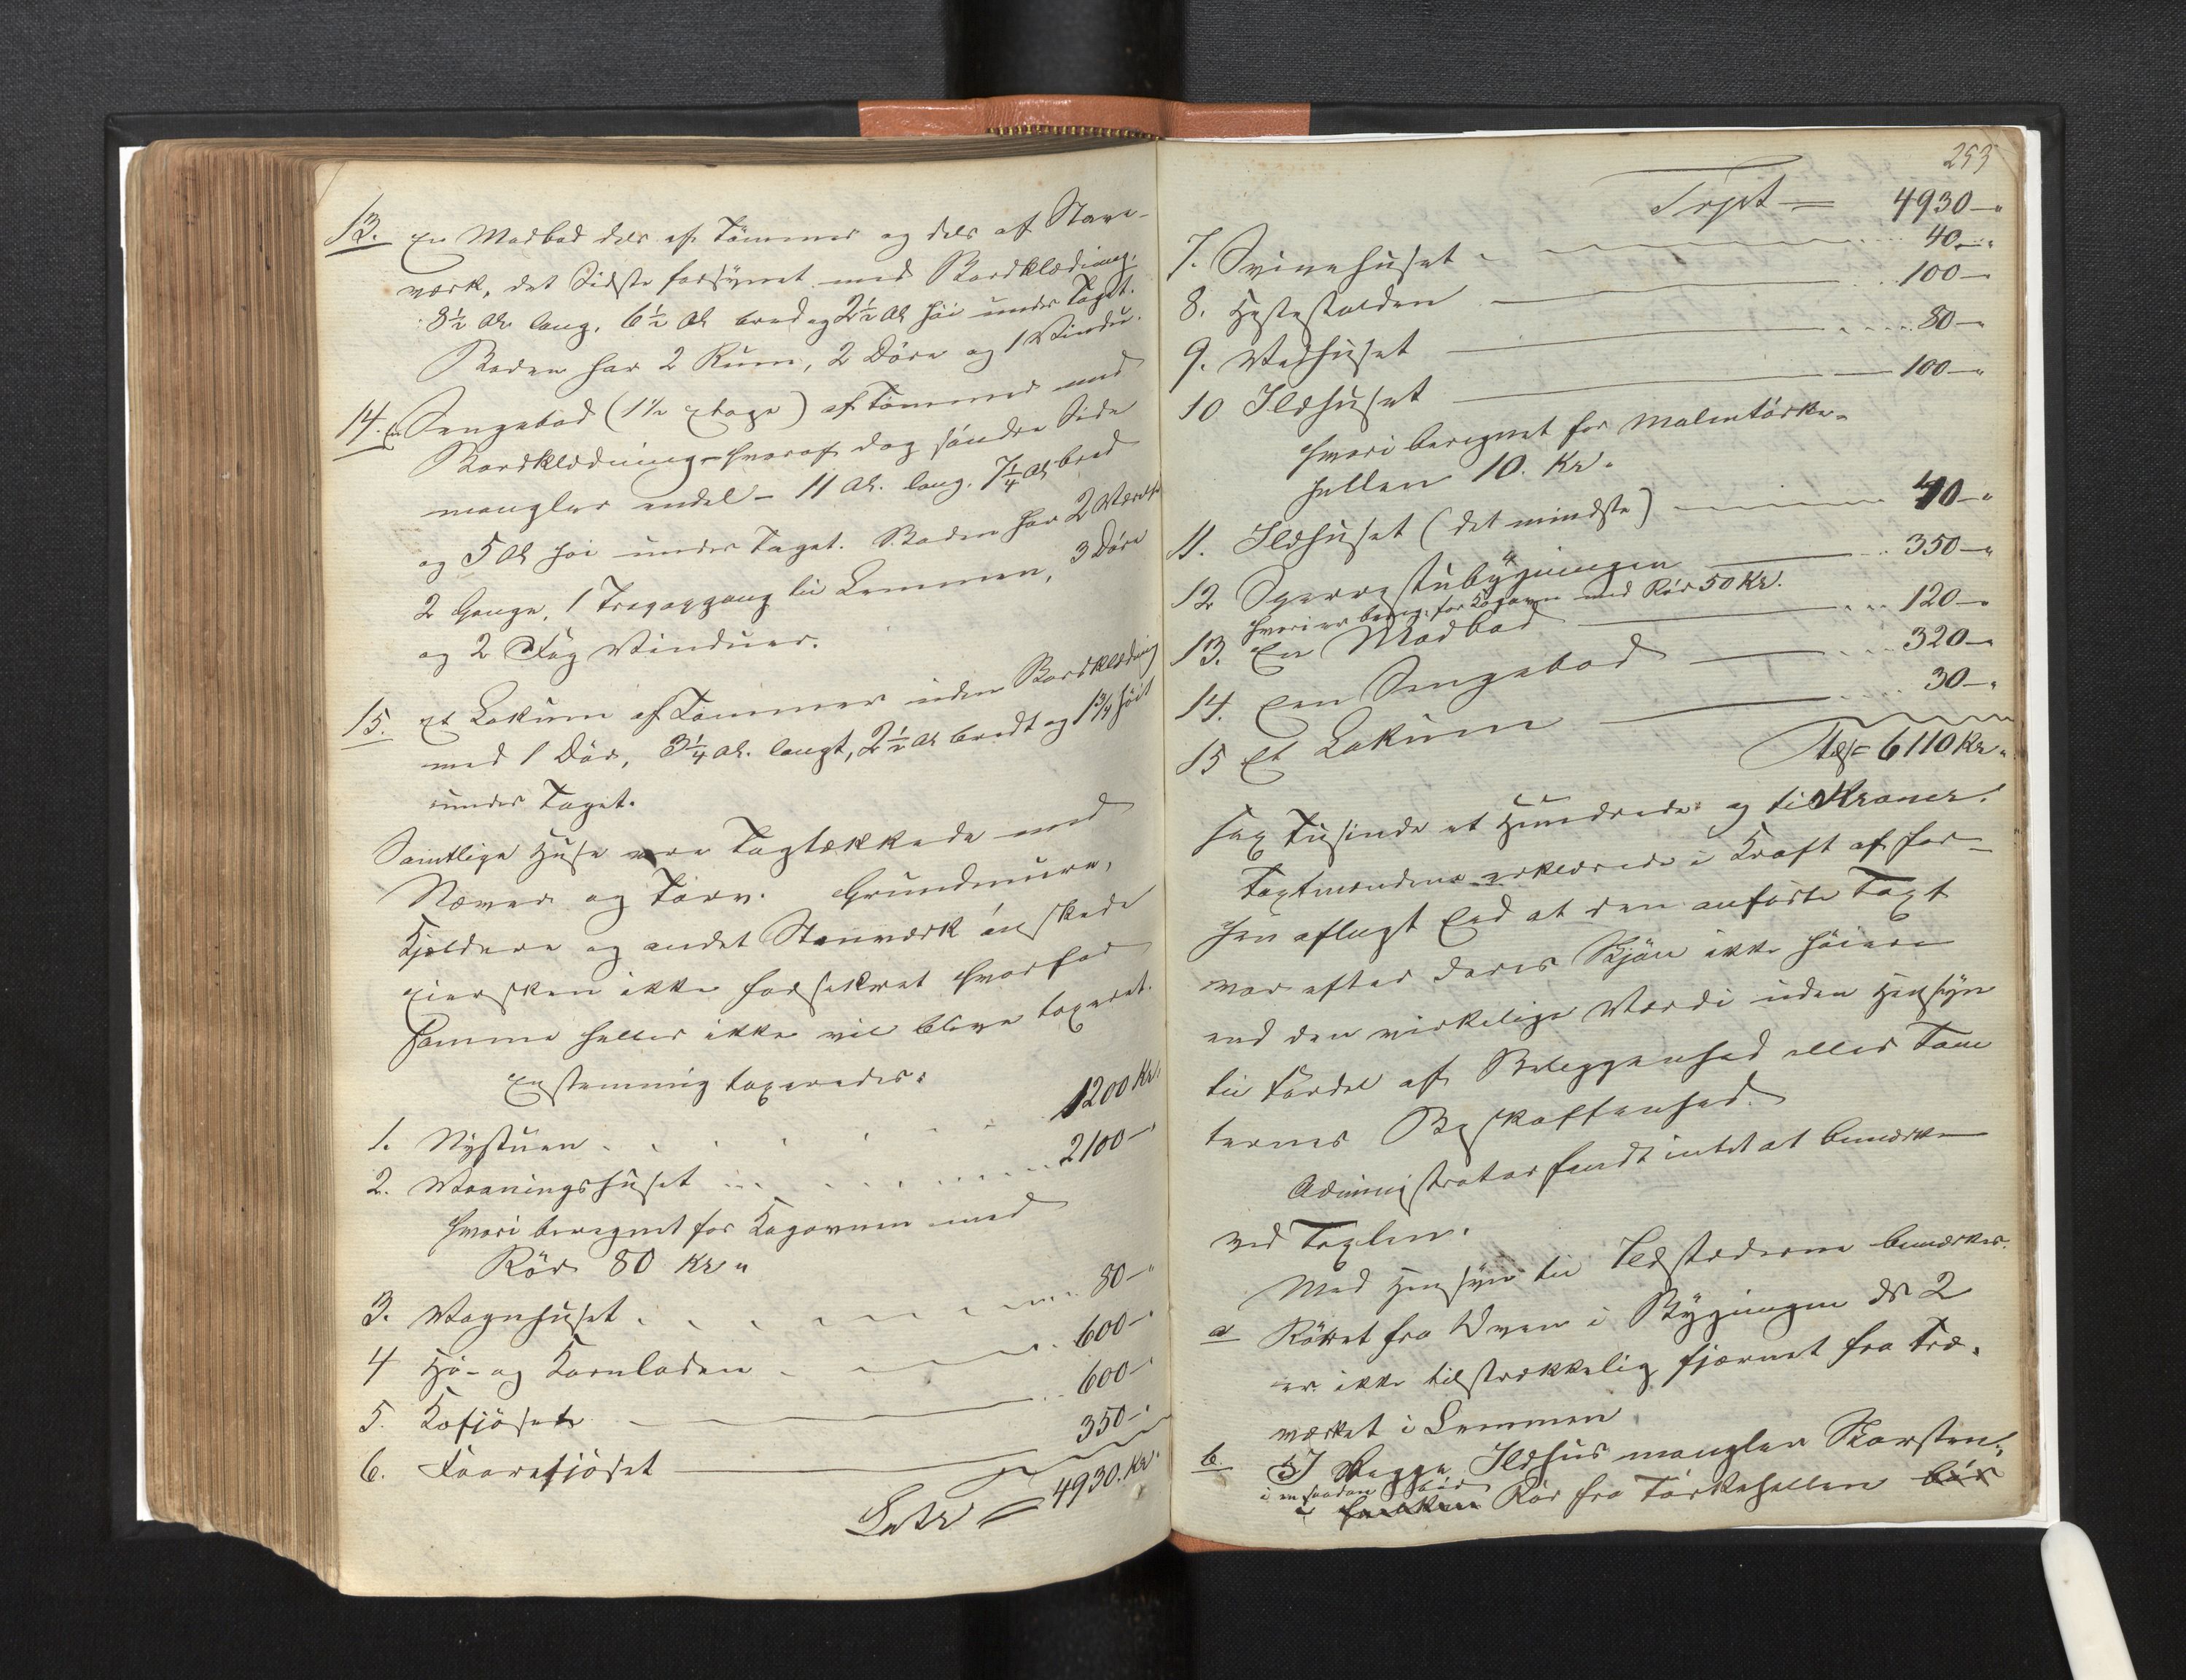 13. En Madbod dels af Tømmer og dels af Stav-
værk, det Sidste forsynet med Bordklædning.
8½ Al. lang, 6½ Al bred og 2½ Al høi under Taget.
Boden har 2 Rum, 2 Døre og 1 Vindu.
14. En Sengebod (1½ Etage) af Tømmer med
Bordklædning – hvoraf dog søndre Side
mangler endel – 11 Al. lang, 7¼ Al bred
og 5 Al høi under Taget. Boden har 2 Værelser
2 Gange, 1 Trapopgang til Lemmen, 3 Døre
og 2 Fag Vinduer.
15. Et Lokum af Tømmer uden Bordklædning
med 1 Dør, 3¼ Al. langt, 2½ Al bredt og 1¾ høit
under Taget.
Samtlige Huse ere Tagtækkede med
Næver og Torv. Grundmure,
Kjeldere og andet Stenværk ønskede
Eiersken ikke forsikret hvorfor
samme heller ikke vil blive taxeret.
Enstemmig taxeredes:
1. Nystuen 1200 Kr.
2. Vaaningshuset 2100 –"
hvori beregnet for Kogovnen med
Rør 80 Kr "
3. Vognhuset 80 –"
4 Hø- og Kornladen 600 –"
5. Kofjøset 600 –"
6. Faarefjøset 350 –"
Latr = 4930. Kr.
253
Trpt = 4930 –"
7. Svinehuset 40 –"
8. Hestestalden 100 –
9. Vedhuset 80 –
10 Ildhuset 100 –
hvori beregnet for Maltørke-
hellen 10. Kr.
11. Ildhuset (det mindste) 40 –"
12 Sperrestubygningen 350 –"
hvori er bereg. for Kogovn med Rør 50 Kr.
13. En Madbod 120 –
14. Een Sengebod 320 –
15 Et Lokum 30 –"
6110 Kr.
Sex Tusinde et Hundrede og ti Kroner.
Taxtmændene erklærede i Kraft af for-
hen aflagt Eed at den anførte Taxt
var efter deres Skjøn ikke høiere
end den virkelige Værdi uden Hensyn
til Fordel af Beliggenhed eller Tom
ternes Beskaffenhed.
Administrator fandt intet at bemærke
ved Taxten.
Med Hensyn til Ildstederne bemærkes.
a Røret fra Ovnen i Bygningen No 2
er ikke tilstrækkelig fjernet fra Træ-
værket i Lemmen
b. I begge Ildhus mangler Skorsten,
i en saadan bør
Rør fra Tørkehellen bør